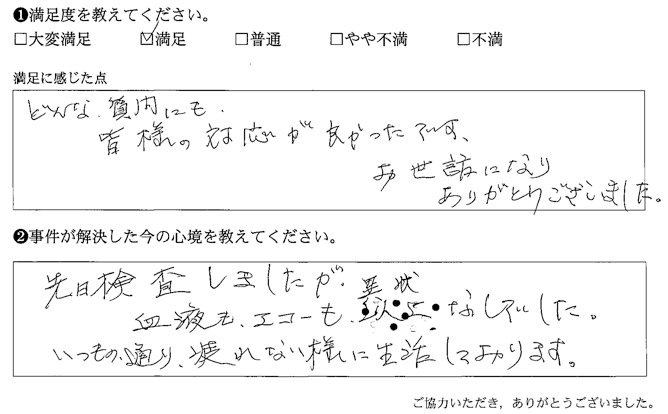 ❶満足度を教えてください。
□大変満足 ☑満足 □普通 □やや不満 □不満
満足に感じた点
どんな質問にも、
皆様の対応が良かったです、
お世話になり
ありがとうございました。
❷事件が解決した今の心境を教えてください。
先日検査しましたが、異状
血液も、エコーも、なしでした。
いつもの通り、疲れない様に生活しております。
ご協力いただき，ありがとうございました。